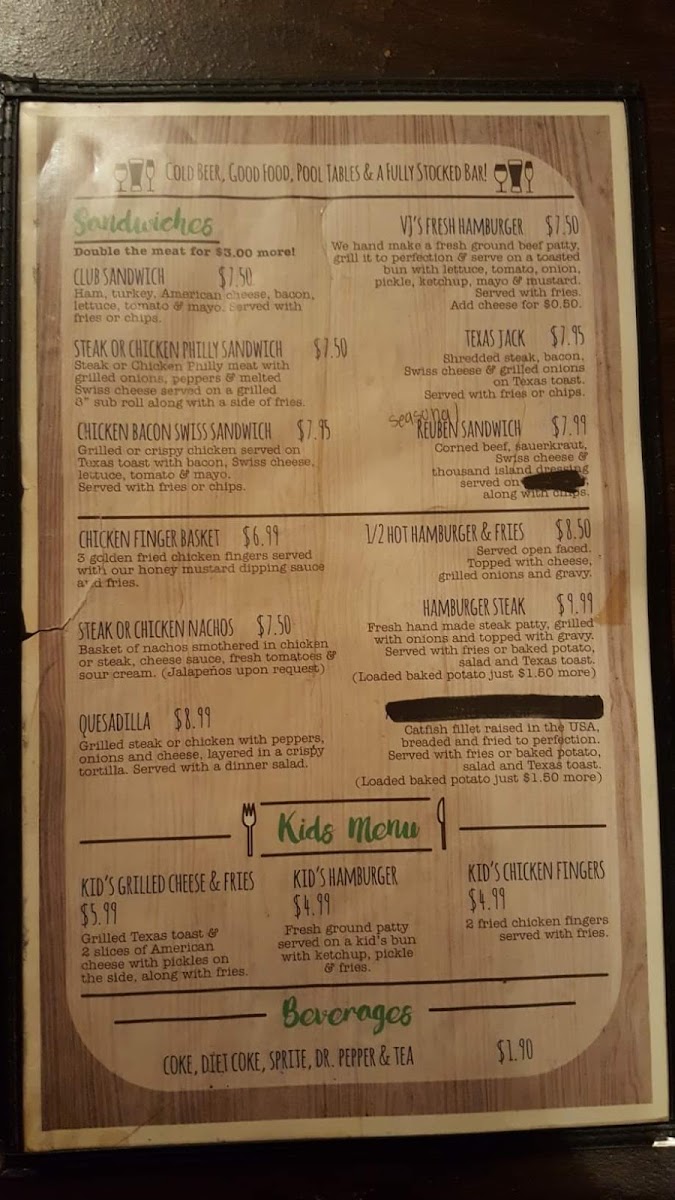 COLD BEER, GOOD FOOD, POOL TABLES & A FULLY STOCKED BAR!
Sandwiches
Double the meat for $3.00 more!
CLUB SANDWICH $7.50
Ham, turkey, American cheese, bacon,
lettuce, tomato & mayo. Served with
fries or chips.
STEAK OR CHICKEN PHILLY SANDWICH $7.50
Steak or Chicken Philly meat with
grilled onions, peppers & melted
Swiss cheese served on a grilled
8" sub roll along with a side of fries.
CHICKEN BACON SWISS SANDWICH $7.95
Grilled or crispy chicken served on
Texas toast with bacon, Swiss cheese,
lettuce, tomato & mayo.
Served with fries or chips.
VJ'S FRESH HAMBURGER $7.50
We hand make a fresh ground beef patty,
grill it to perfection & serve on a toasted
bun with lettuce, tomato, onion,
pickle, ketchup, mayo & mustard.
Served with fries.
Add cheese for $0.50.
TEXAS JACK $7.95
Shredded steak, bacon,
Swiss cheese & grilled onions
on Texas toast.
Served with fries or chips.
seasonal
REUBEN SANDWICH $7.99
Corned beef, sauerkraut,
Swiss cheese &
thousand island dressing
served on
along with chips.
CHICKEN FINGER BASKET $6.99
3 golden fried chicken fingers served
with our honey mustard dipping sauce
and fries.
STEAK OR CHICKEN NACHOS $7.50
Basket of nachos smothered in chicken
or steak, cheese sauce, fresh tomatoes &
sour cream. (Jalapeños upon request)
QUESADILLA $8.99
Grilled steak or chicken with peppers,
onions and cheese, layered in a crispy
tortilla. Served with a dinner salad.
1/2 HOT HAMBURGER & FRIES $8.50
Served open faced.
Topped with cheese,
grilled onions and gravy.
HAMBURGER STEAK $9.99
Fresh hand made steak patty, grilled
with onions and topped with gravy.
Served with fries or baked potato,
salad and Texas toast.
(Loaded baked potato just $1.50 more)
Catfish fillet raised in the USA,
breaded and fried to perfection.
Served with fries or baked potato,
salad and Texas toast.
(Loaded baked potato just $1.50 more)
Kids Menu
KID'S GRILLED CHEESE & FRIES
$5.99
Grilled Texas toast &
2 slices of American
cheese with pickles on
the side, along with fries.
KID'S HAMBURGER
$4.99
Fresh ground patty
served on a kid's bun
with ketchup, pickle
& fries.
KID'S CHICKEN FINGERS
$4.99
2 fried chicken fingers
served with fries.
Beverages
COKE, DIET COKE, SPRITE, DR. PEPPER & TEA $1.90